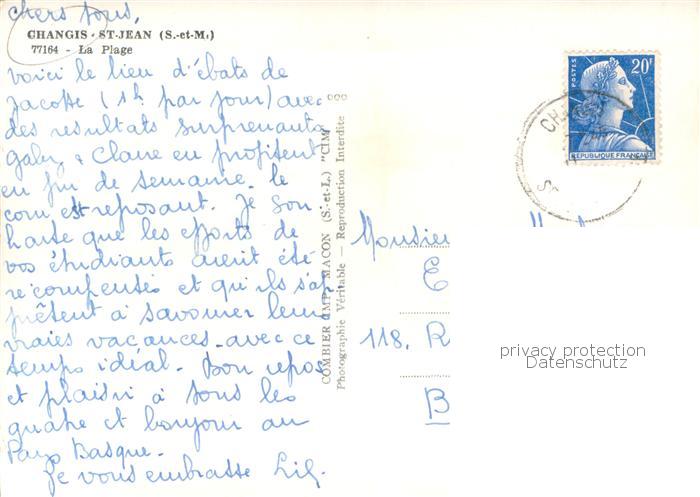 chers tous,
CHANGIS - ST-JEAN (S.-et-M.)
77164 - La Plage
voici le lieu d'ébats de
Jacotte (1h par jour) avec
des resultats surprenants
gaby & Claire en profitent
en fin de semaine. le
coin est reposant. Je sou
haite que les efforts de
vos étudiants aient été
récompensés et qu'ils s'ap
prêtent à savourer leurs
vraies vacances - avec ce
temps idéal. Bon repos
et plaisir à tous les
quatre et bonjour au
Pays Basque.
Je vous embrasse Lil.
COMBIER IMP. MACON (S.-et-L.) "CIM"
Photographie Véritable — Reproduction Interdite
POSTES
20F
REPUBLIQUE FRANÇAISE
CHA
S.
Monsieur
E
118. R
B
privacy protection
Datenschutz